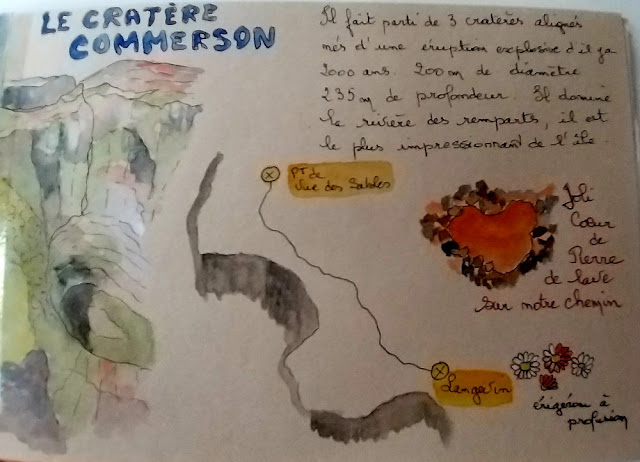 LE CRATÈRE
COMMERSON
Il fait parti de 3 cratères alignés
nés d'une éruption explosive d'il y a
2000 ans. 200m de diamètre
235m de profondeur. Il domine
la rivière des remparts, il est
le plus impressionnant de l'île.
PT de
Vue des Sables
Joli
Cœur
de
Pierre
de lave
sur notre chemin
Langevin
érigéron à
profusion